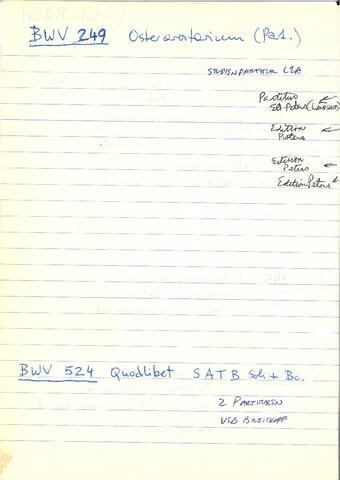 BWV 249 Osteroratorium (Part.)
STUDIENPARTITUR
Partitur
Ed. Peters (
Edition
Peters
Edition
Peters
Edition Peters
BWV 524 Quodlibet SATB Soli + Bc.
2 PARTITUREN
VEB BREITKOPF